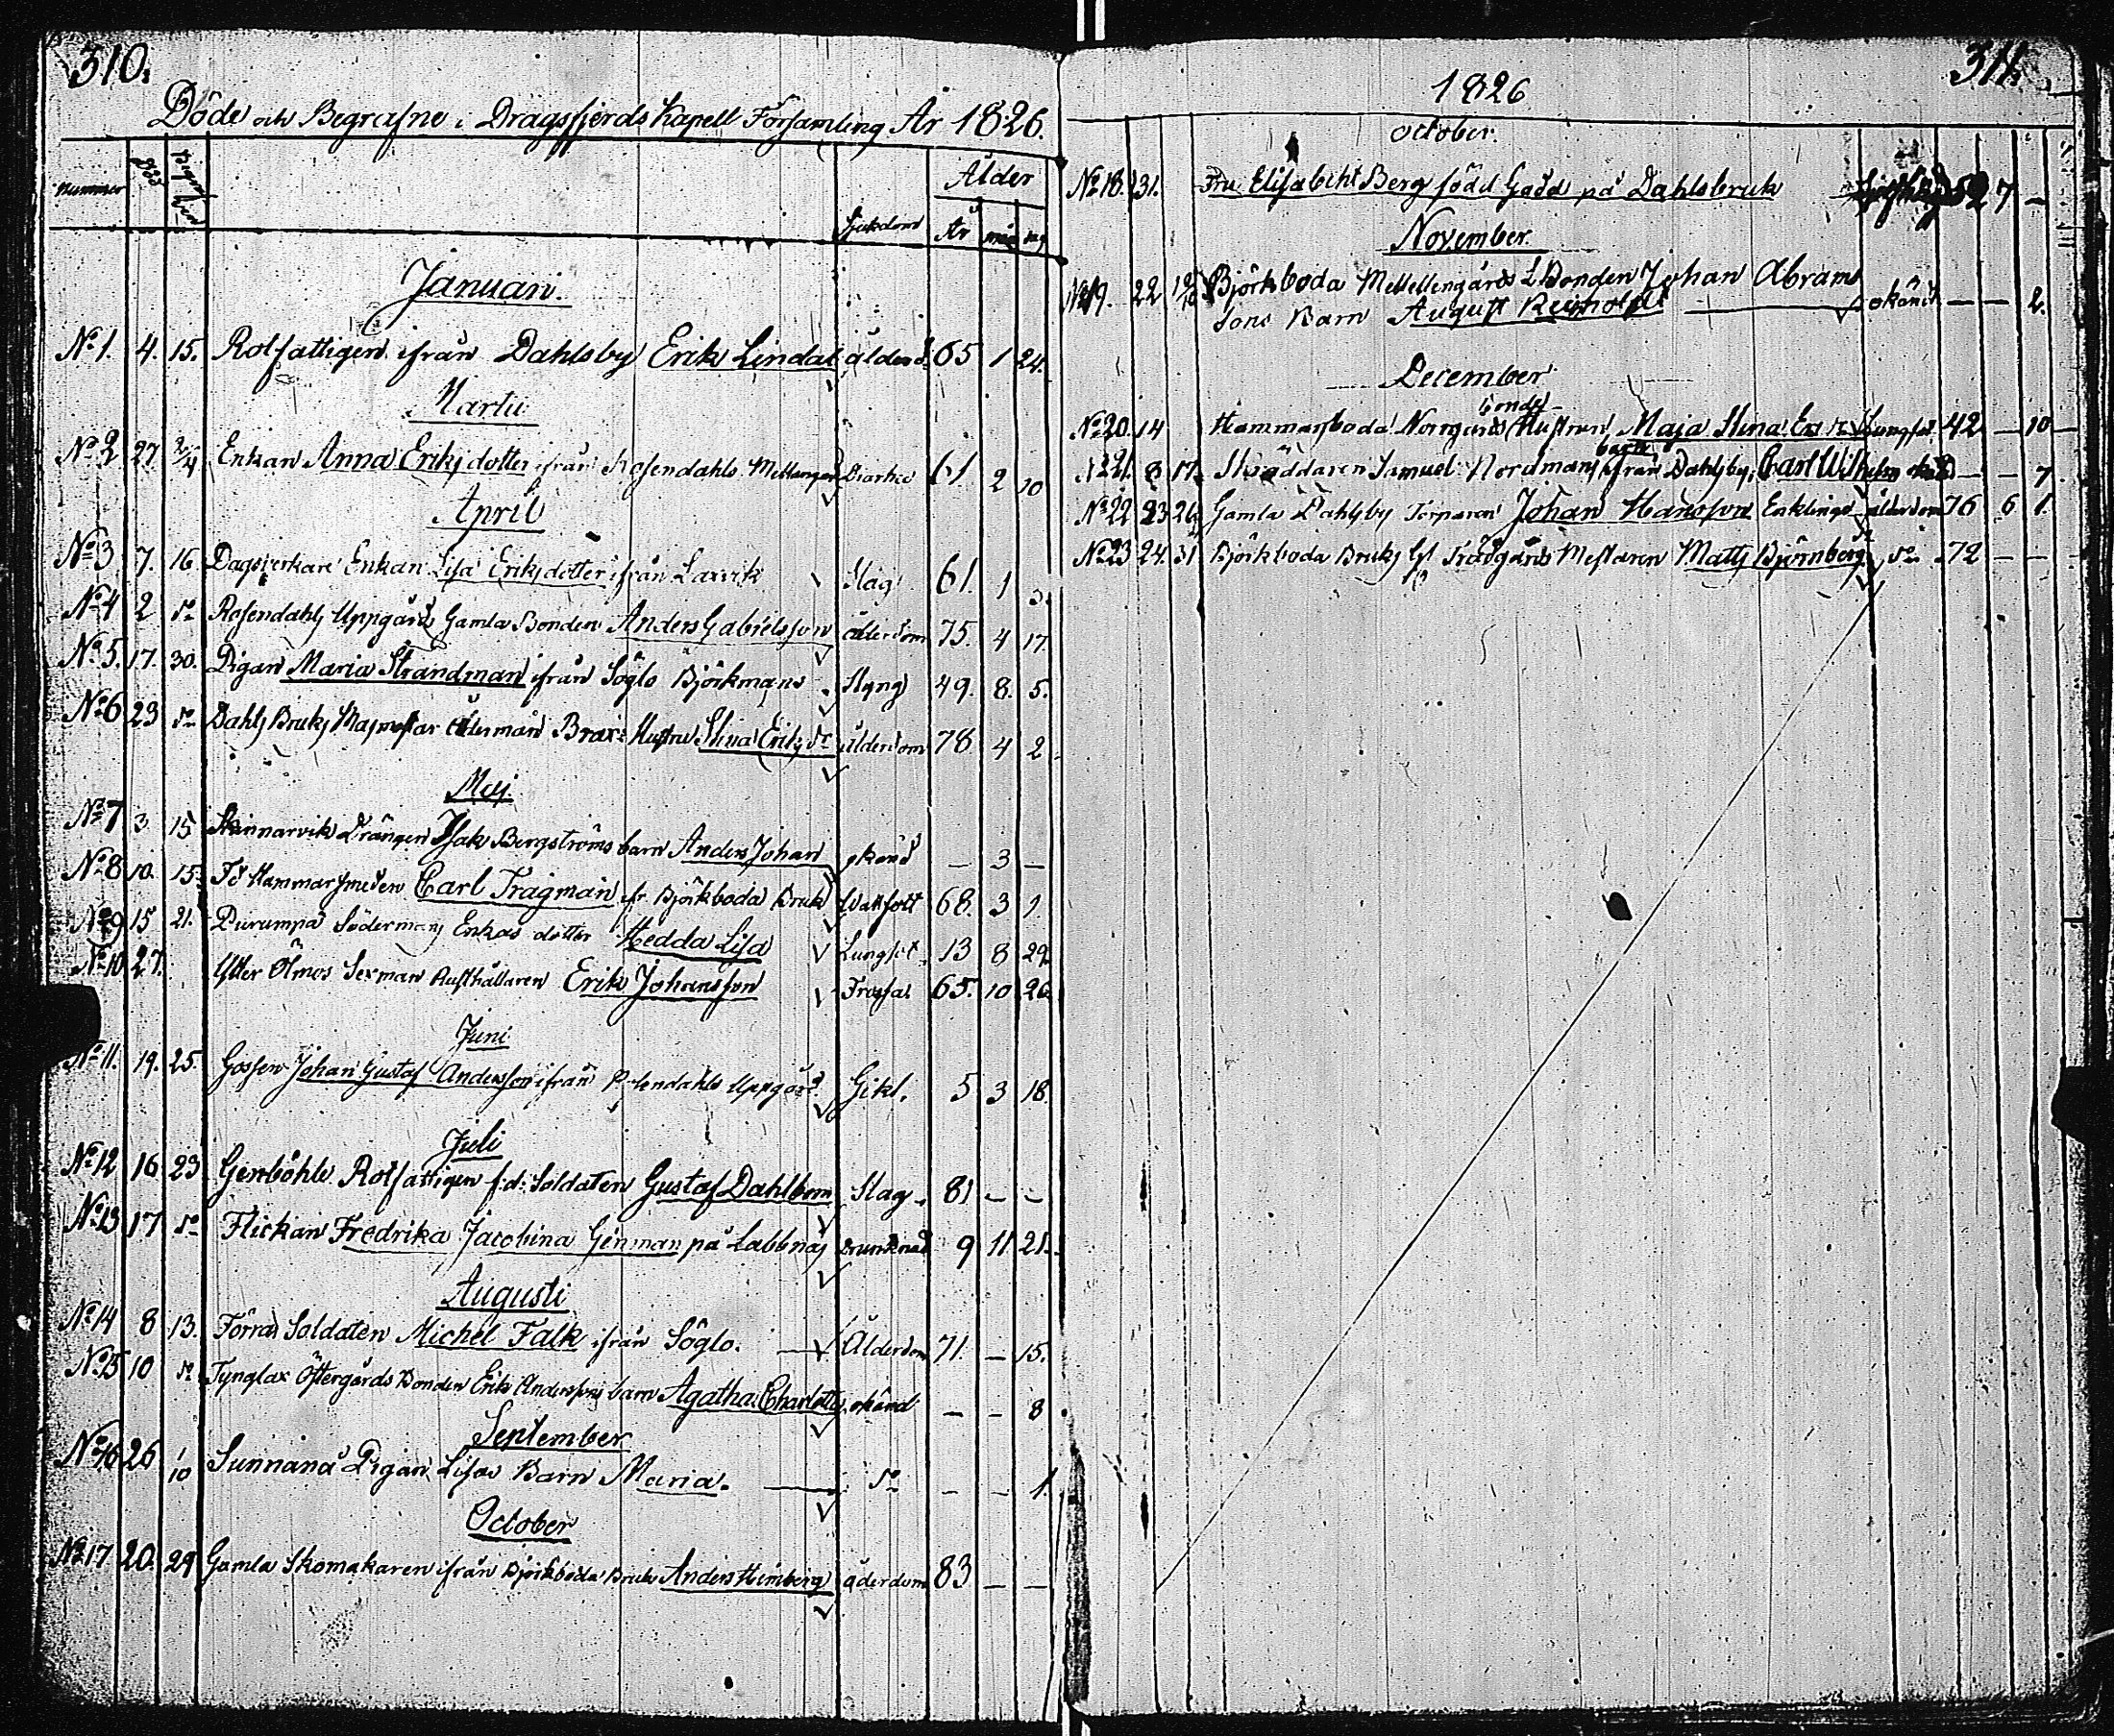 310.
Döde och Begrafne i Dragsfjerds Kapell Församling År 1826.
nummer
Ålder
Sjukdom År
Januari.
No 1. 4. 15. Rotfattigen ifrån Dahlsby Erik Lindal 65 1 24.
Martii
No 2 27 2/4 Enkan Anna Eriksdotter ifrån Rosendahls Diarhee 61 2 10
April
No 3 7. 16. Enkan Lisa Eriksdotter ifrån Laxvik Slag 61. 1 3.
No 4 2 do Rosendahls Uppgårds Gamla Bonden Anders Gabrielsson ålderdom 75. 4 17.
No 5. 17. 30. Pigan Maria Strandman ifrån Söglo Björkmans Styng 49. 8. 5.
No 6 23 do Dahls Bruks Ålderman Hustru Stina Eriks dr ålderdom 78 4 2
Maj.
No 7 3 15 Skinnarvik Drängen Isak Bergströms barn Anders Johan okänd — 3 —
No 8 10. 15. Fd Hammarsmeden Carl Trägman ifr. Björkboda Bruk 68. 3 1.
No 9 15 21. Purumpä Södermans Enkas dotter Hedda Lisa Lungsot 13 8 29.
No 10 27. Ytter Ölmos Sexman Rusthållaren Erik Johansson 65. 10 26.
Juni
No 11. 19. 25. Gossen Johan Gustaf Andersson ifrån Rosendahls Uppgård Gikt. 5 3 18.
Juli
No 12 16 23 Genböhle Rotfattigen f:d: Soldaten Gustaf Dahlbom Slag 81 — —
No 13 17 do Flickan Fredrika Jacobina Genman på Labbnäs Drunknad 9 11 21.
Augusti
No 14 8 13. Förra Soldaten Michel Falk ifrån Söglo. Ålderdom 71. — 15.
No 15 10 do Tynglax Östergårds Bonden Erik Anderssons barn Agatha Charlotta okänd — — 8
September
No 16 26 1/10 Sunnanå Pigan Lisas Barn Maria. do — — 1.
October
No 17 20. 29 Gamla Skomakaren ifrån Björkboda Bruk Anders Himberg åderdom 83 — —
311.
1826
October.
No 18. 31. Fru Elisabeht Berg född Gadd på Dahlsbruk 7 —
November.
No 19. 22 Björkboda Mellengårds Bonden Johan Abrams
sons Barn August Reinhold okänd — — 2.
December
Bond
No 20. 14 Hammarsboda Norrgårds Hustrun Maja Stina Lungsot 42 — 10
barn
No 21. 8 17. Skräddaren Samuel Nordmans ifrån Dahlsby, Carl Wilhelm — — 7.
No 22 23 26. Gamla Dahlsby Torparen Johan Hansson Enkling ålderdom 76 6 1.
No 23 24. 31 Björkboda Bruks Trädgårds Mestaren Matts Björnberg do 72 — —